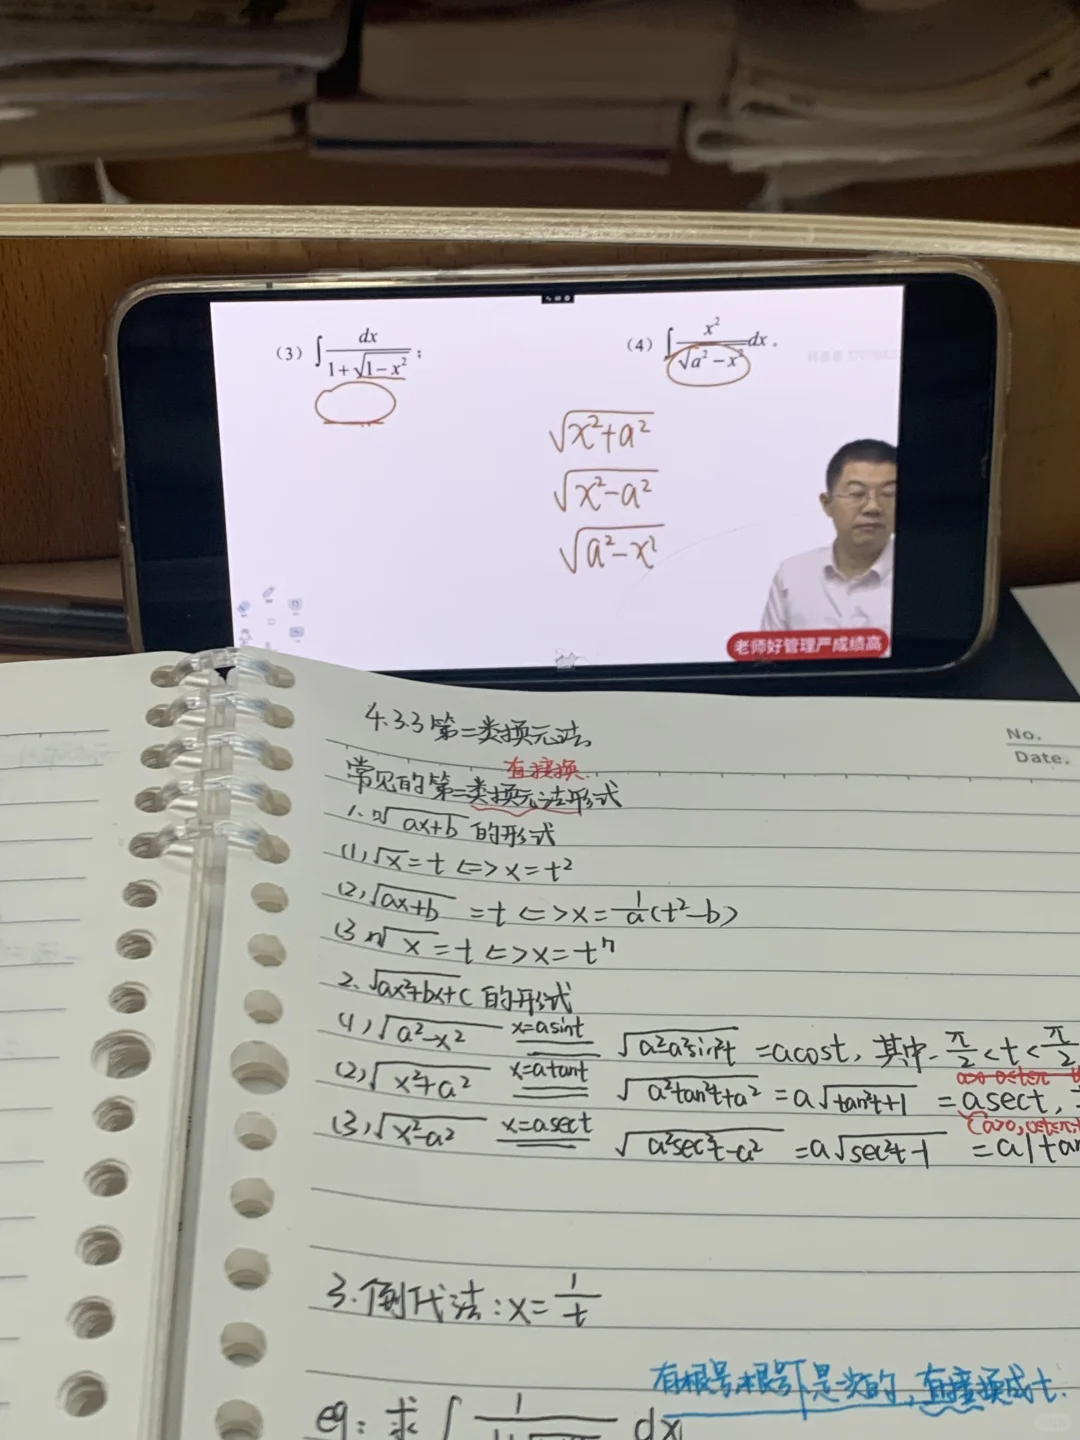 (3) ∫ dx / (1+√(1-x²)) ;
(4) ∫ x² / √(a²-x²) dx .
√(x²+a²)
√(x²-a²)
√(a²-x²)
老师好管理严成绩高
No.
Date.
4.3.3 第二类换元法
直接换
常见的第二类换元法形式
1. ⁿ√(ax+b) 的形式
(1) √x = t <=> x = t²
(2) √(ax+b) = t <=> x = 1/a (t²-b)
(3) ⁿ√x = t <=> x = tⁿ
2. √(ax²+bx+c) 的形式
(1) √(a²-x²) x=asint √(a²a²sin²t) = acost, 其中 -π/2 < t < π/2
(2) √(x²+a²) x=atant √(a²tan²t+a²) = a√(tan²t+1) = asect,
(3) √(x²-a²) x=asect √(a²sec²t-a²) = a√(sec²t-1) = a|tan
3. 倒代法: x = 1/t
有根号,根号下是一次的, 直接换成t.
eg: 求 ∫ 1 dx